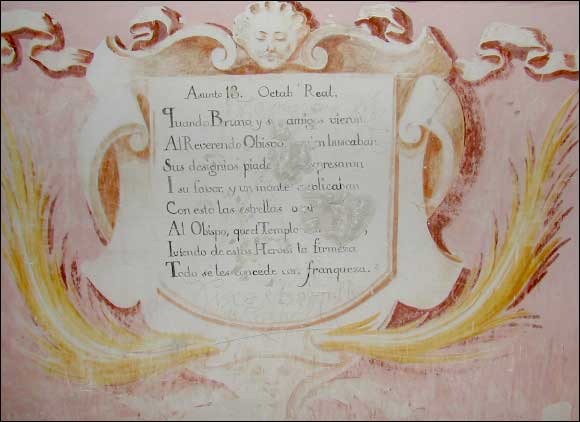 Asunto 18. Octab Real,
Quando Bruno y amigos vieron
Al Reverendo Obispo, buscaban
Sus designios
I su favor, y un monte
Con esto las estrellas
Al Obispo, que el Templo
de estos Heroes la firmeza
Todo se les concede con franqueza.